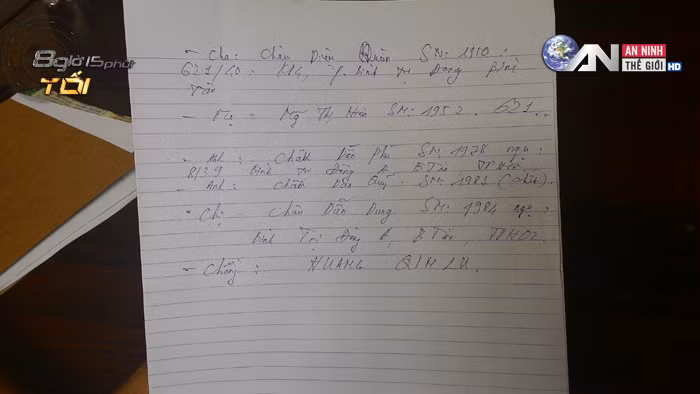 8 giờ 15 phút
TỐI
AN NINH
THẾ GIỚI HD
- Cha: Châu Diệu Quân SN: 1950:
621/40: E14, Bình Trị Đông Bình
Tân
- Mẹ = Ng Thị Hiên SN: 1952. 621..
- Anh: Châu Dẫn Phú SN: 1978 ngụ:
8/59 Bình Trị Đông B Tân TPHCM
- Anh: Châu Dẫn SN: 1981 (chết).
- Chị Châu Dẫn Dung SN: 1984 ngụ:
Bình Trị Đông A, B Tân, TPHCM.
- Chồng: HUANG QIN LU.